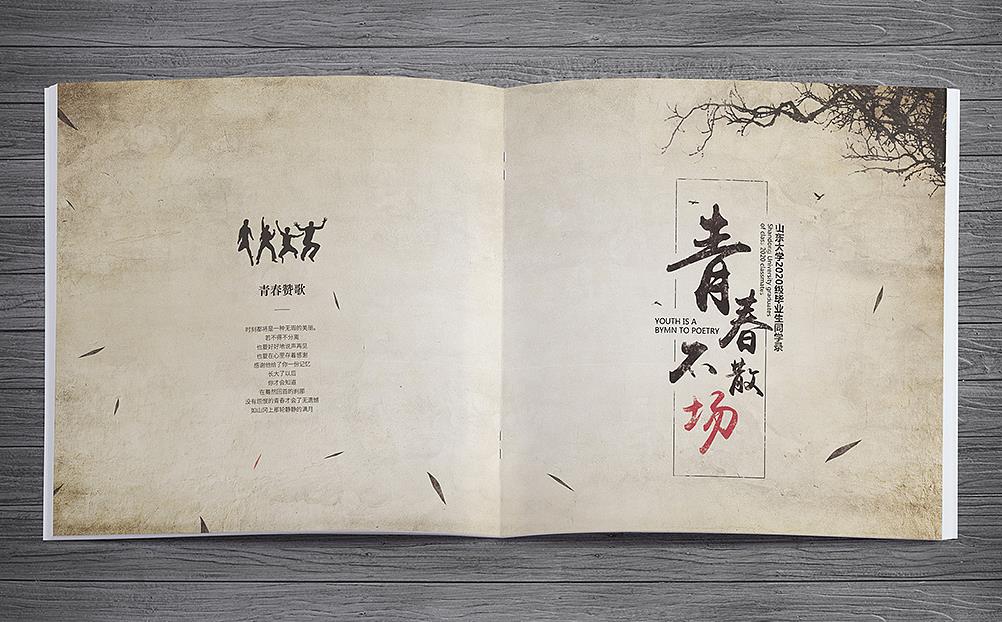 青春赞歌
时刻都将是一种无瑕的美丽。
若不得不分离
也要好好地说声再见
也要在心里存着感谢
感谢他给了你一份记忆
长大了以后
你才会知道
在蓦然回首的刹那
没有怨恨的青春才会了无遗憾
如山冈上那轮静静的满月
青春不散场
YOUTH IS A
BYMN TO POETRY
山东大学2020级毕业生同学录
Shandong University graduates
of class 2020 classmates